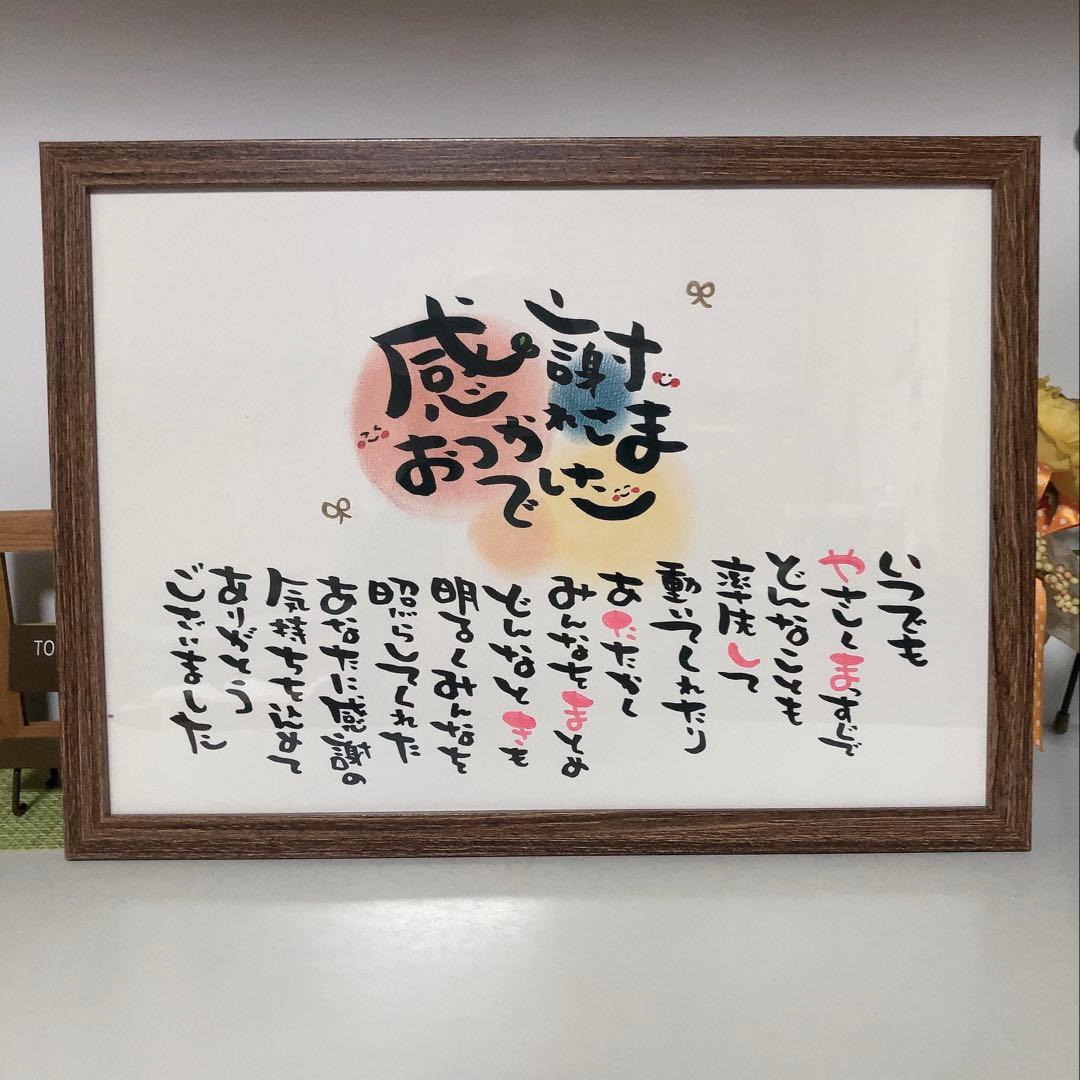 感謝
おつかれさま
でした
いつでも
やさしくまっすぐで
どんなことも
率先して
動いてくれたり
あたたかく
みんなをまとめ
どんなときも
明るくみんなを
照らしてくれた
あなたに感謝の
気持ちをこめて
ありがとう
ございました
TO